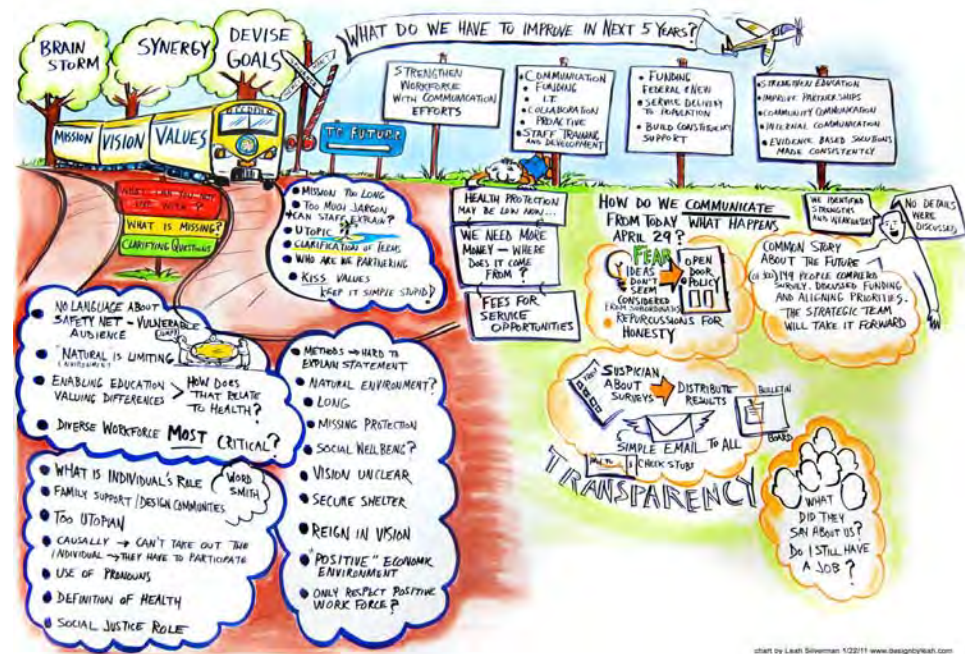 BRAIN
STORM
SYNERGY
DEVISE
GOALS
WHAT DO WE HAVE TO IMPROVE IN NEXT 5 YEARS?
MISSION
VISION
VALUES
TO FUTURE
STRENGTHEN
WORKFORCE
WITH COMMUNICATION
EFFORTS
• COMMUNICATION
• FUNDING
• I.T.
• COLLABORATION
• PROACTIVE
• STAFF TRAINING
AND DEVELOPMENT
• FUNDING
FEDERAL & NEW
• SERVICE DELIVERY
TO POPULATION
• BUILD CONSTITUENCY
SUPPORT
• STRENGTHEN EDUCATION
• IMPROVE PARTNERSHIPS
• COMMUNITY COMMUNICATION
• INTERNAL COMMUNICATION
• EVIDENCE BASED SOLUTIONS
MADE CONSISTENTLY
WHAT CAN YOU NOT
LIVE WITH?
WHAT IS MISSING?
CLARIFYING QUESTIONS
• MISSION TOO LONG
• TOO MUCH JARGON
CAN STAFF EXPLAIN?
• UTOPIC
• CLARIFICATION OF TERMS
• WHO ARE WE PARTNERING
• KISS VALUES
(KEEP IT SIMPLE STUPID)
HEALTH PROTECTION
MAY BE LOW NOW...
WE NEED MORE
MONEY – WHERE
DOES IT COME
FROM?
FEES FOR
SERVICE
OPPORTUNITIES
HOW DO WE COMMUNICATE
FROM TODAY WHAT HAPPENS
APRIL 29?
FEAR
IDEAS
DON'T
SEEM
CONSIDERED
FROM SUBORDINATES
OPEN
DOOR
POLICY
• REPURCUSSIONS FOR
HONESTY
WE IDENTIFIED
STRENGTHS
AND WEAKNESSES
NO DETAILS
WERE
DISCUSSED
COMMON STORY
ABOUT THE FUTURE
149 PEOPLE COMPLETED
SURVEY. DISCUSSED FUNDING
AND ALIGNING PRIORITIES.
THE STRATEGIC TEAM
WILL TAKE IT FORWARD
SUSPICIAN
ABOUT
SURVEYS
DISTRIBUTE
RESULTS
BULLETIN
BOARD
SIMPLE EMAIL TO ALL
CHECK STUBS
TRANSPARENCY
WHAT
DID THEY
SAY ABOUT US?
DO I STILL HAVE
A JOB?
• NO LANGUAGE ABOUT
SAFETY NET – VULNERABLE
AUDIENCE
• "NATURAL IS LIMITING
ENVIRONMENT
• ENABLING EDUCATION
VALUING DIFFERENCES > HOW DOES
THAT RELATE
TO HEALTH?
• DIVERSE WORKFORCE MOST CRITICAL?
• WHAT IS INDIVIDUAL'S ROLE
WORD
SMITH
• FAMILY SUPPORT / DESIGN COMMUNITIES
• TOO UTOPIAN
• CAUSALLY → CAN'T TAKE OUT THE
INDIVIDUAL → THEY HAVE TO PARTICIPATE
• USE OF PRONOUNS
• DEFINITION OF HEALTH
• SOCIAL JUSTICE ROLE
• METHODS → HARD TO
EXPLAIN STATEMENT
• NATURAL ENVIRONMENT?
• LONG
• MISSING PROTECTION
• SOCIAL WELL BEING?
• VISION UNCLEAR
• SECURE SHELTER
• REIGN IN VISION
• "POSITIVE" ECONOMIC
ENVIRONMENT
• ONLY RESPECT POSITIVE
WORK FORCE?
chart by Leah Silverman 1/22/11 www.designbyleah.com